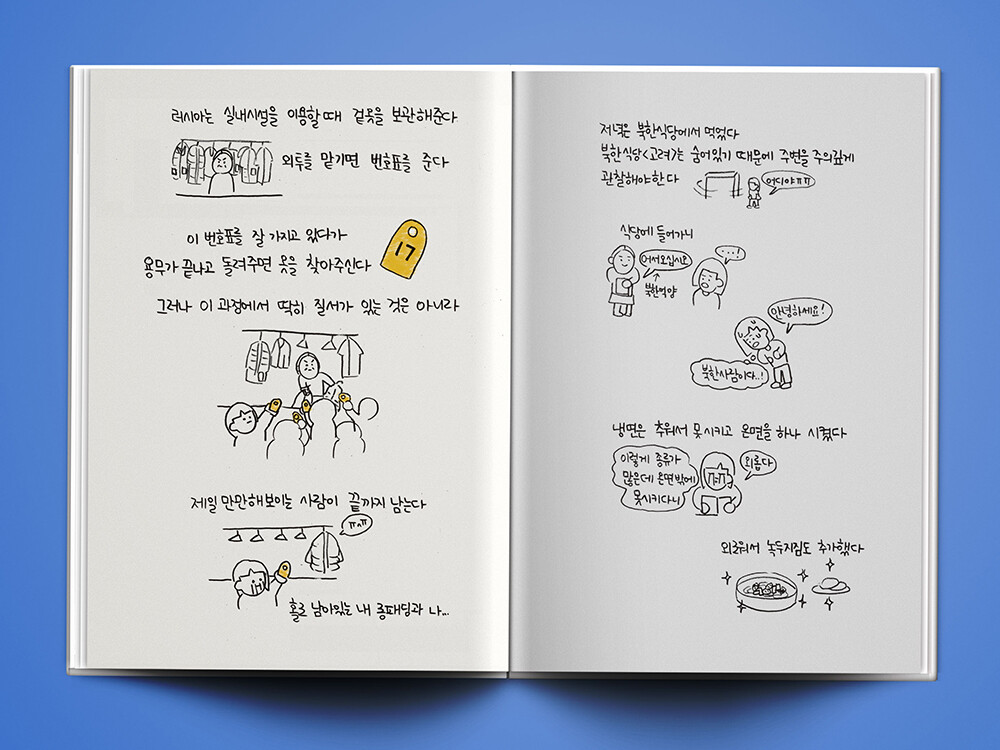 러시아는 실내시설을 이용할 때 겉옷을 보관해준다
외투를 맡기면 번호표를 준다
이 번호표를 잘 가지고 있다가
용무가 끝나고 돌려주면 옷을 찾아주신다
17
그러나 이 과정에서 딱히 질서가 있는 것은 아니라
제일 만만해보이는 사람이 끝까지 남는다
ㅠㅅㅠ
홀로 남아있는 내 롱패딩과 나...
저녁은 북한식당에서 먹었다
북한식당<고려>는 숨어있기 때문에 주변을 주의깊게
관찰해야한다
어디야ㅠㅠ
식당에 들어가니
어서오십시오
↑
북한억양
...
안녕하세요!
북한사람이다..!
냉면은 추워서 못시키고 온면을 하나 시켰다
이렇게 종류가
많은데 온면밖에
못시키다니
외롭다
외로워서 녹두지짐도 추가했다